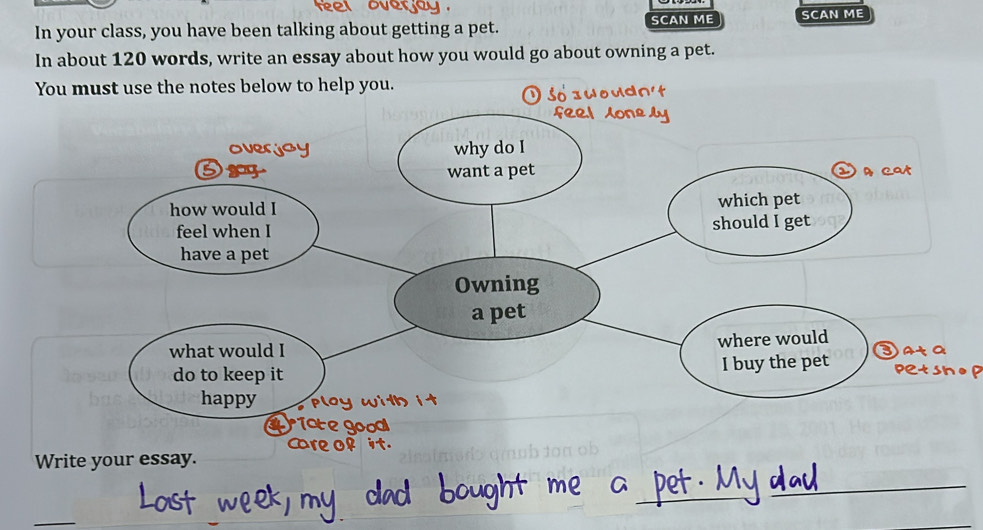 feel overjoy.
SCAN ME
SCAN ME
In your class, you have been talking about getting a pet.
In about 120 words, write an essay about how you would go about owning a pet.
You must use the notes below to help you.
① so I wouldn't
feel lonely
why do I
want a pet
overjoy
⑤
② A cat
how would I
feel when I
have a pet
which pet
should I get
Owning
a pet
what would I
do to keep it
happy
where would
I buy the pet
③ At a
petshop
• Play with it
④ • Take good
care of it.
Write your essay.
Last week, my dad bought me a pet. My dad